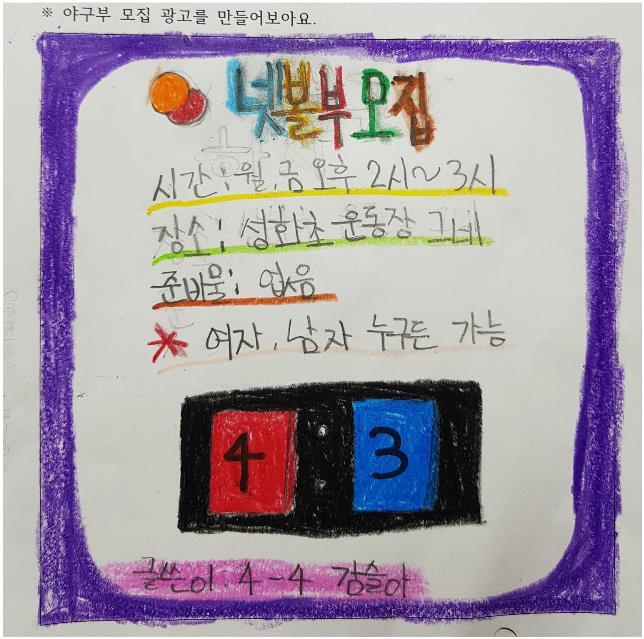 ※ 야구부 모집 광고를 만들어보아요.
넷볼부 모집
시간: 월, 금 오후 2시~3시
장소: 성화초 운동장 그네
준비물: 없음
* 여자, 남자 누구든 가능
4 : 3
글쓴이: 4-4 김슬아